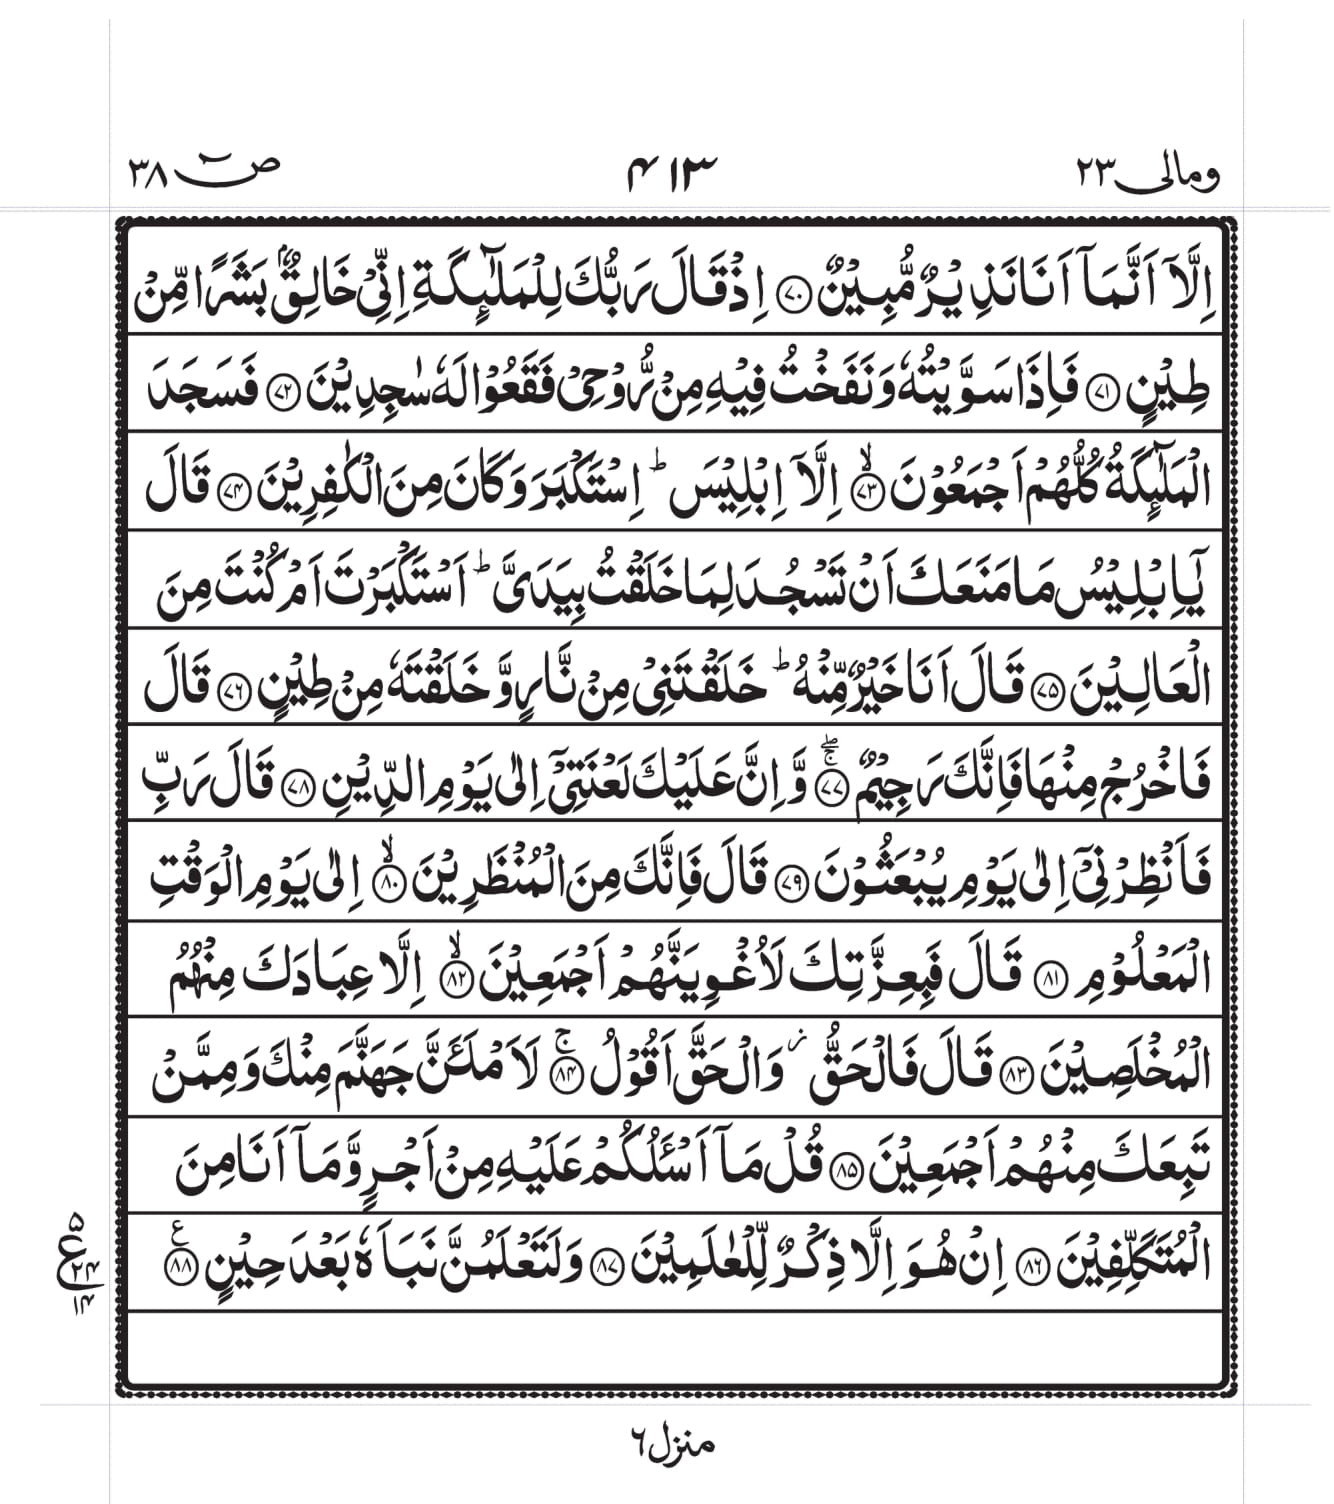 ومالی ٢٣ ۴١٣ صٓ ٣٨
اِلَّاۤ اَنَّمَاۤ اَنَا نَذِيْرٌ مُّبِيْنٌ ﴿٧٠﴾ اِذْ قَالَ رَبُّكَ لِلْمَلٰٓئِكَةِ اِنِّىْ خَالِقٌۢ بَشَرًا مِّنْ
طِيْنٍ ﴿٧١﴾ فَاِذَا سَوَّيْتُهٗ وَنَفَخْتُ فِيْهِ مِنْ رُّوْحِىْ فَقَعُوْا لَهٗ سٰجِدِيْنَ ﴿٧٢﴾ فَسَجَدَ
الْمَلٰٓئِكَةُ كُلُّهُمْ اَجْمَعُوْنَ ۙ﴿٧٣﴾ اِلَّاۤ اِبْلِيْسَ ؕ اِسْتَكْبَرَ وَكَانَ مِنَ الْكٰفِرِيْنَ ﴿٧۴﴾ قَالَ
يٰۤاِبْلِيْسُ مَا مَنَعَكَ اَنْ تَسْجُدَ لِمَا خَلَقْتُ بِيَدَىَّ ؕ اَسْتَكْبَرْتَ اَمْ كُنْتَ مِنَ
الْعَالِيْنَ ﴿٧۵﴾ قَالَ اَنَا خَيْرٌ مِّنْهُ ؕ خَلَقْتَنِىْ مِنْ نَّارٍ وَّ خَلَقْتَهٗ مِنْ طِيْنٍ ﴿٧٦﴾ قَالَ
فَاخْرُجْ مِنْهَا فَاِنَّكَ رَجِيْمٌ ۚۖ﴿٧٧﴾ وَّاِنَّ عَلَيْكَ لَعْنَتِىْۤ اِلٰى يَوْمِ الدِّيْنِ ﴿٧٨﴾ قَالَ رَبِّ
فَاَنْظِرْنِىْۤ اِلٰى يَوْمِ يُبْعَثُوْنَ ﴿٧٩﴾ قَالَ فَاِنَّكَ مِنَ الْمُنْظَرِيْنَ ۙ﴿٨٠﴾ اِلٰى يَوْمِ الْوَقْتِ
الْمَعْلُوْمِ ﴿٨١﴾ قَالَ فَبِعِزَّتِكَ لَاُغْوِيَنَّهُمْ اَجْمَعِيْنَ ۙ﴿٨٢﴾ اِلَّا عِبَادَكَ مِنْهُمُ
الْمُخْلَصِيْنَ ﴿٨٣﴾ قَالَ فَالْحَقُّ ز وَالْحَقَّ اَقُوْلُ ۚ﴿٨۴﴾ لَاَمْلَــَٔنَّ جَهَنَّمَ مِنْكَ وَمِمَّنْ
تَبِعَكَ مِنْهُمْ اَجْمَعِيْنَ ﴿٨۵﴾ قُلْ مَاۤ اَسْـَٔلُكُمْ عَلَيْهِ مِنْ اَجْرٍ وَّمَاۤ اَنَا مِنَ
الْمُتَكَلِّفِيْنَ ﴿٨٦﴾ اِنْ هُوَ اِلَّا ذِكْرٌ لِّلْعٰلَمِيْنَ ﴿٨٧﴾ وَلَتَعْلَمُنَّ نَبَاَهٗ بَعْدَ حِيْنٍ ﴿٨٨﴾ ع
۵
ع
٢۴
١۴
منزل ٦